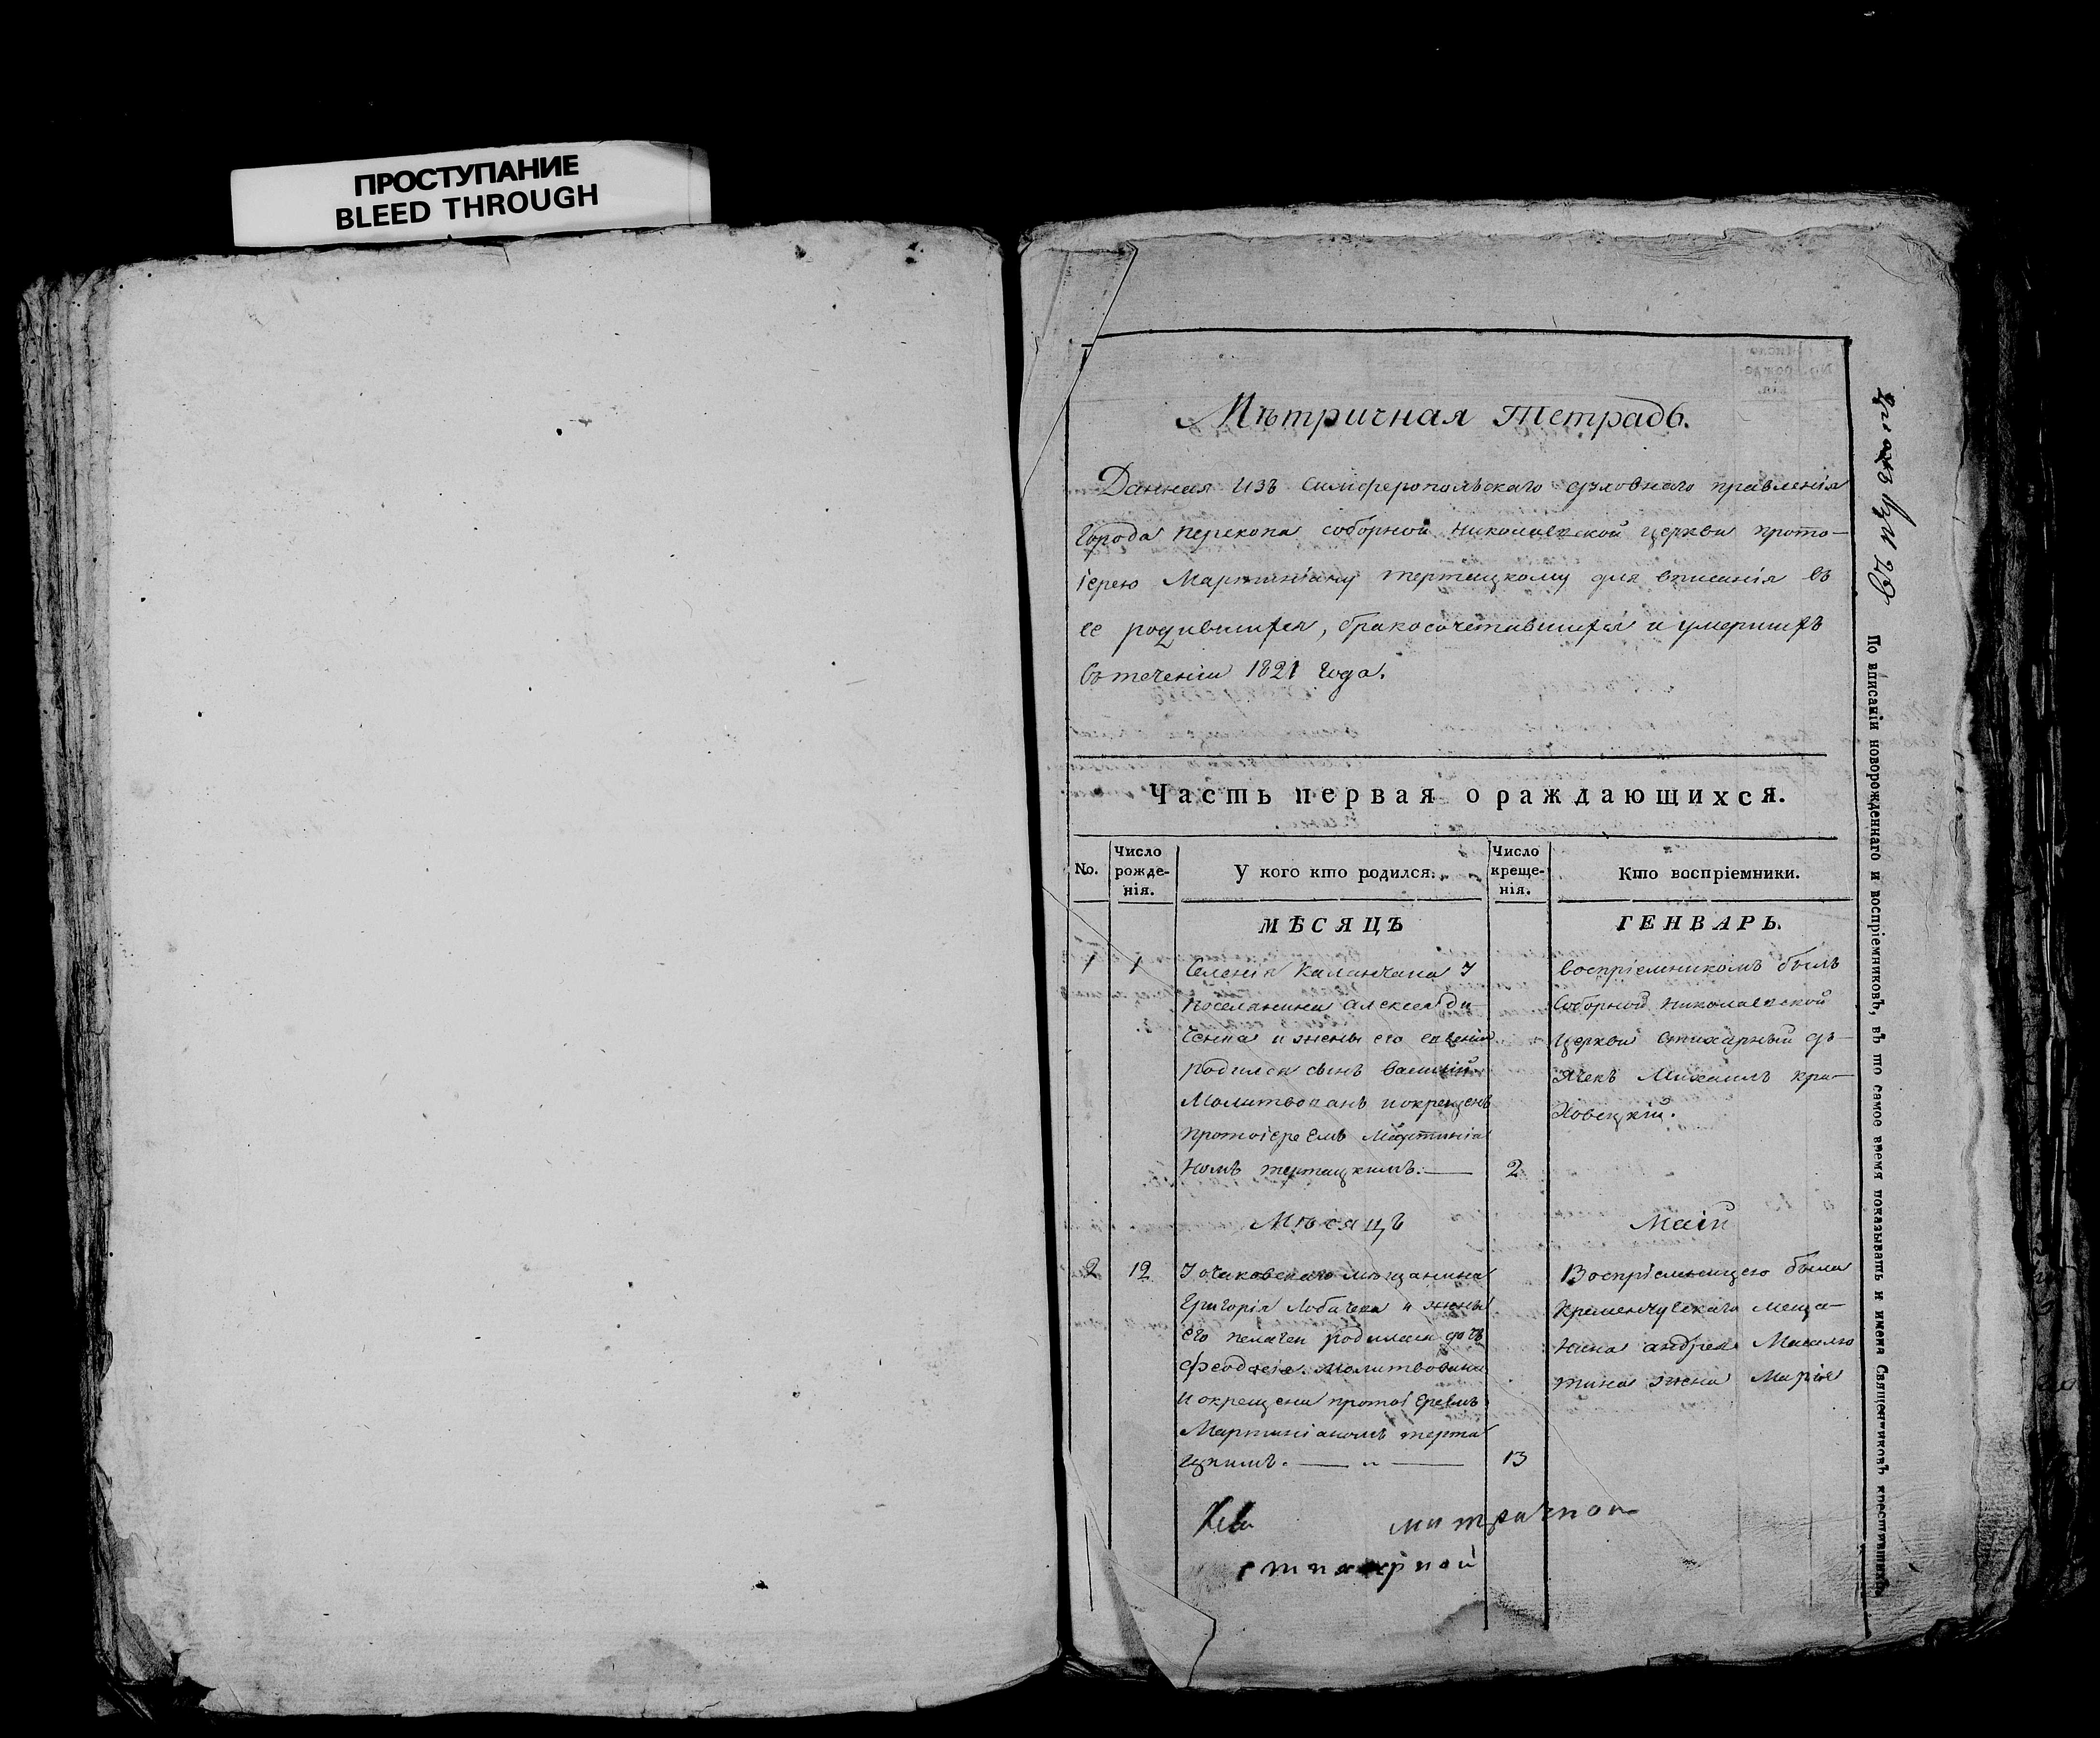 ПРОСТУПАНИЕ
BLEED THROUGH
Мѣтричная тетрадь.
Данная изъ Симферопольскаго духовнаго правленія
города Перекопа соборной Николаевской церкви прото-
іерею Мартиніану Тертацкому для вписанія въ
ее родившихся, бракосочетавшихся и умершихъ
въ теченіи 1821 года.
Часть первая о раждающихся.
No.
Число
рожде-
нія.
У кого кто родился.
Число
креще-
нія.
Кто воспріемники.
МѢСЯЦЪ
ГЕНВАРЬ.
1
1
Селенія Каланчака У
поселянина Алексея Ди-
ченка и жены его
родился сынъ Василій.
Молитвованъ и окрещенъ
протоіереемъ Мартиніа
номъ Тертацкимъ.
2
воспріемникомъ былъ
Соборной Николаевской
церкви стихарный дъ-
ячекъ Михаилъ Кра-
ховецкій.
Мѣсяцъ
Маій
2
12
У очаковскаго мѣщанина
Григорія Лобачева и жены
его Пелагеи родилась дочь
Феодосія. Молитвована
и окрещена протоіереемъ
Мартиніаномъ Терта
цкимъ. — „ —
13
Воспріемницею была
Кременчугскаго меща-
нина Андрея
жена Марія
митричной
По вписаніи новорожденнаго и воспріемниковъ, въ то самое время показывать и имена Священниковъ крестившихъ